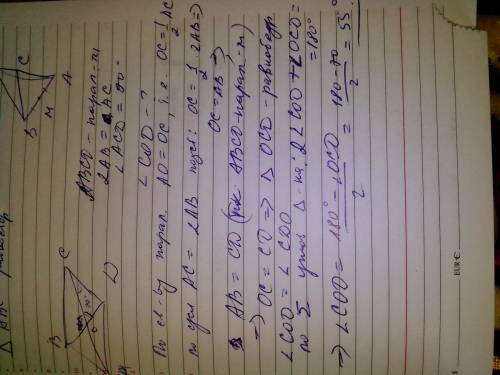 Δ ABC
B
C
M
A
B
C
O
D
ABCD – парал-м
2AB = AC
∠ACD = 70°
∠COD – ?
По св-ву парал. AO = OC, т.е. OC = 1/2 AC
по усл AC = 2AB позел: OC = 1/2 · 2AB ⇒
OC = AB ⇒
AB = CD (т.к. ABCD-парал-м)
⇒ OC = CD ⇒ Δ OCD – равнобедр.
∠COD = ∠CDO
по Σ углов Δ-ка: 2∠COD + ∠OCD =
= 180°
⇒ ∠COD = 180° – ∠OCD / 2 = 180 – 70 / 2 = 55°
EUR €